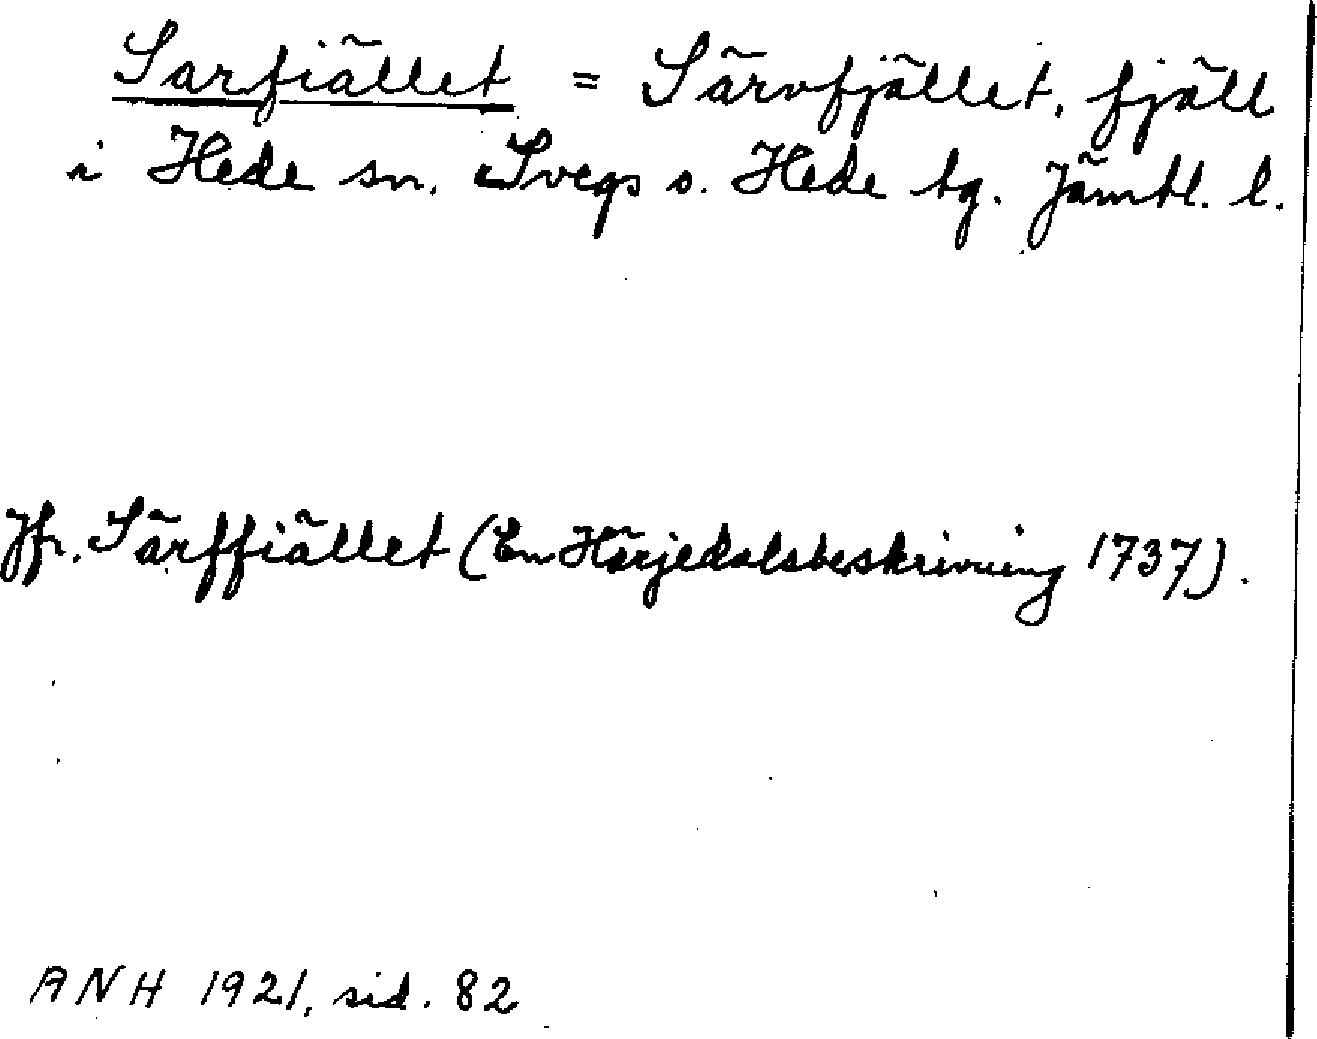 Sarfiället = Särvfjället, fjäll
i Hede sn. Svegs o. Hede tg. Jämtl. l.
Jfr. Särffiället (En Härjedalsbeskrivning 1737).
ANH 1921, sid. 82